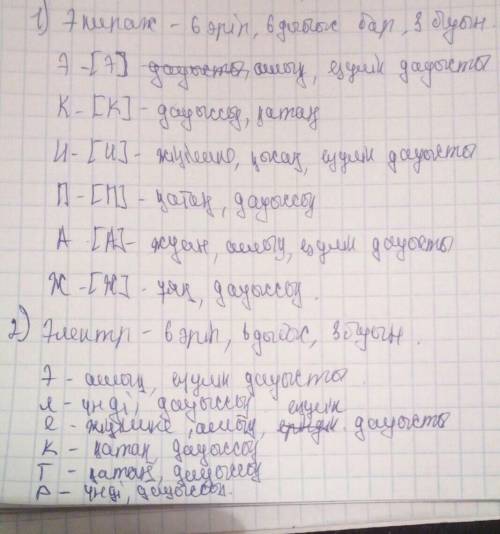 1) Экипаж - 6 әріп, 6 дыбыс бар, 3 буын.
Э - [Э] - дауысты, ашық, езулік дауысты
К - [К] - дауыссыз, қатаң
И - [И] - жіңішке, қысаң, езулік дауысты
П - [П] - қатаң, дауыссыз
А - [А] - жуан, ашық, езулік дауысты
Ж - [Ж] - ұяң, дауыссыз.
2) Электр - 6 әріп, 6 дыбыс, 3 буын.
Э - ашық, езулік дауысты
Л - үнді, дауыссыз
Е - жіңішке, ашық, езулік дауысты
К - қатаң, дауыссыз
Т - қатаң, дауыссыз
Р - үнді, дауыссыз.